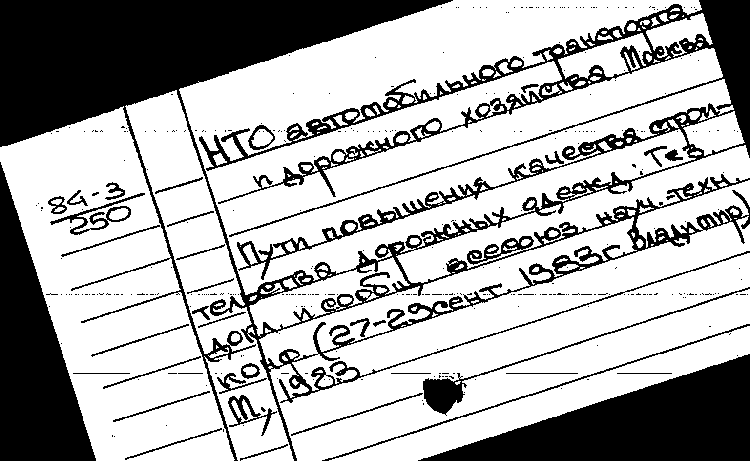 84-3
250
НТО автомобильного транспорта
и дорожного хозяйства. Москва
Пути повышения качества строи-
тельства дорожных одежд: Тез.
докл. и сообщ. всесоюз. науч.-техн.
конф. (27-29 сент. 1983г. Владимир)
М., 1983.